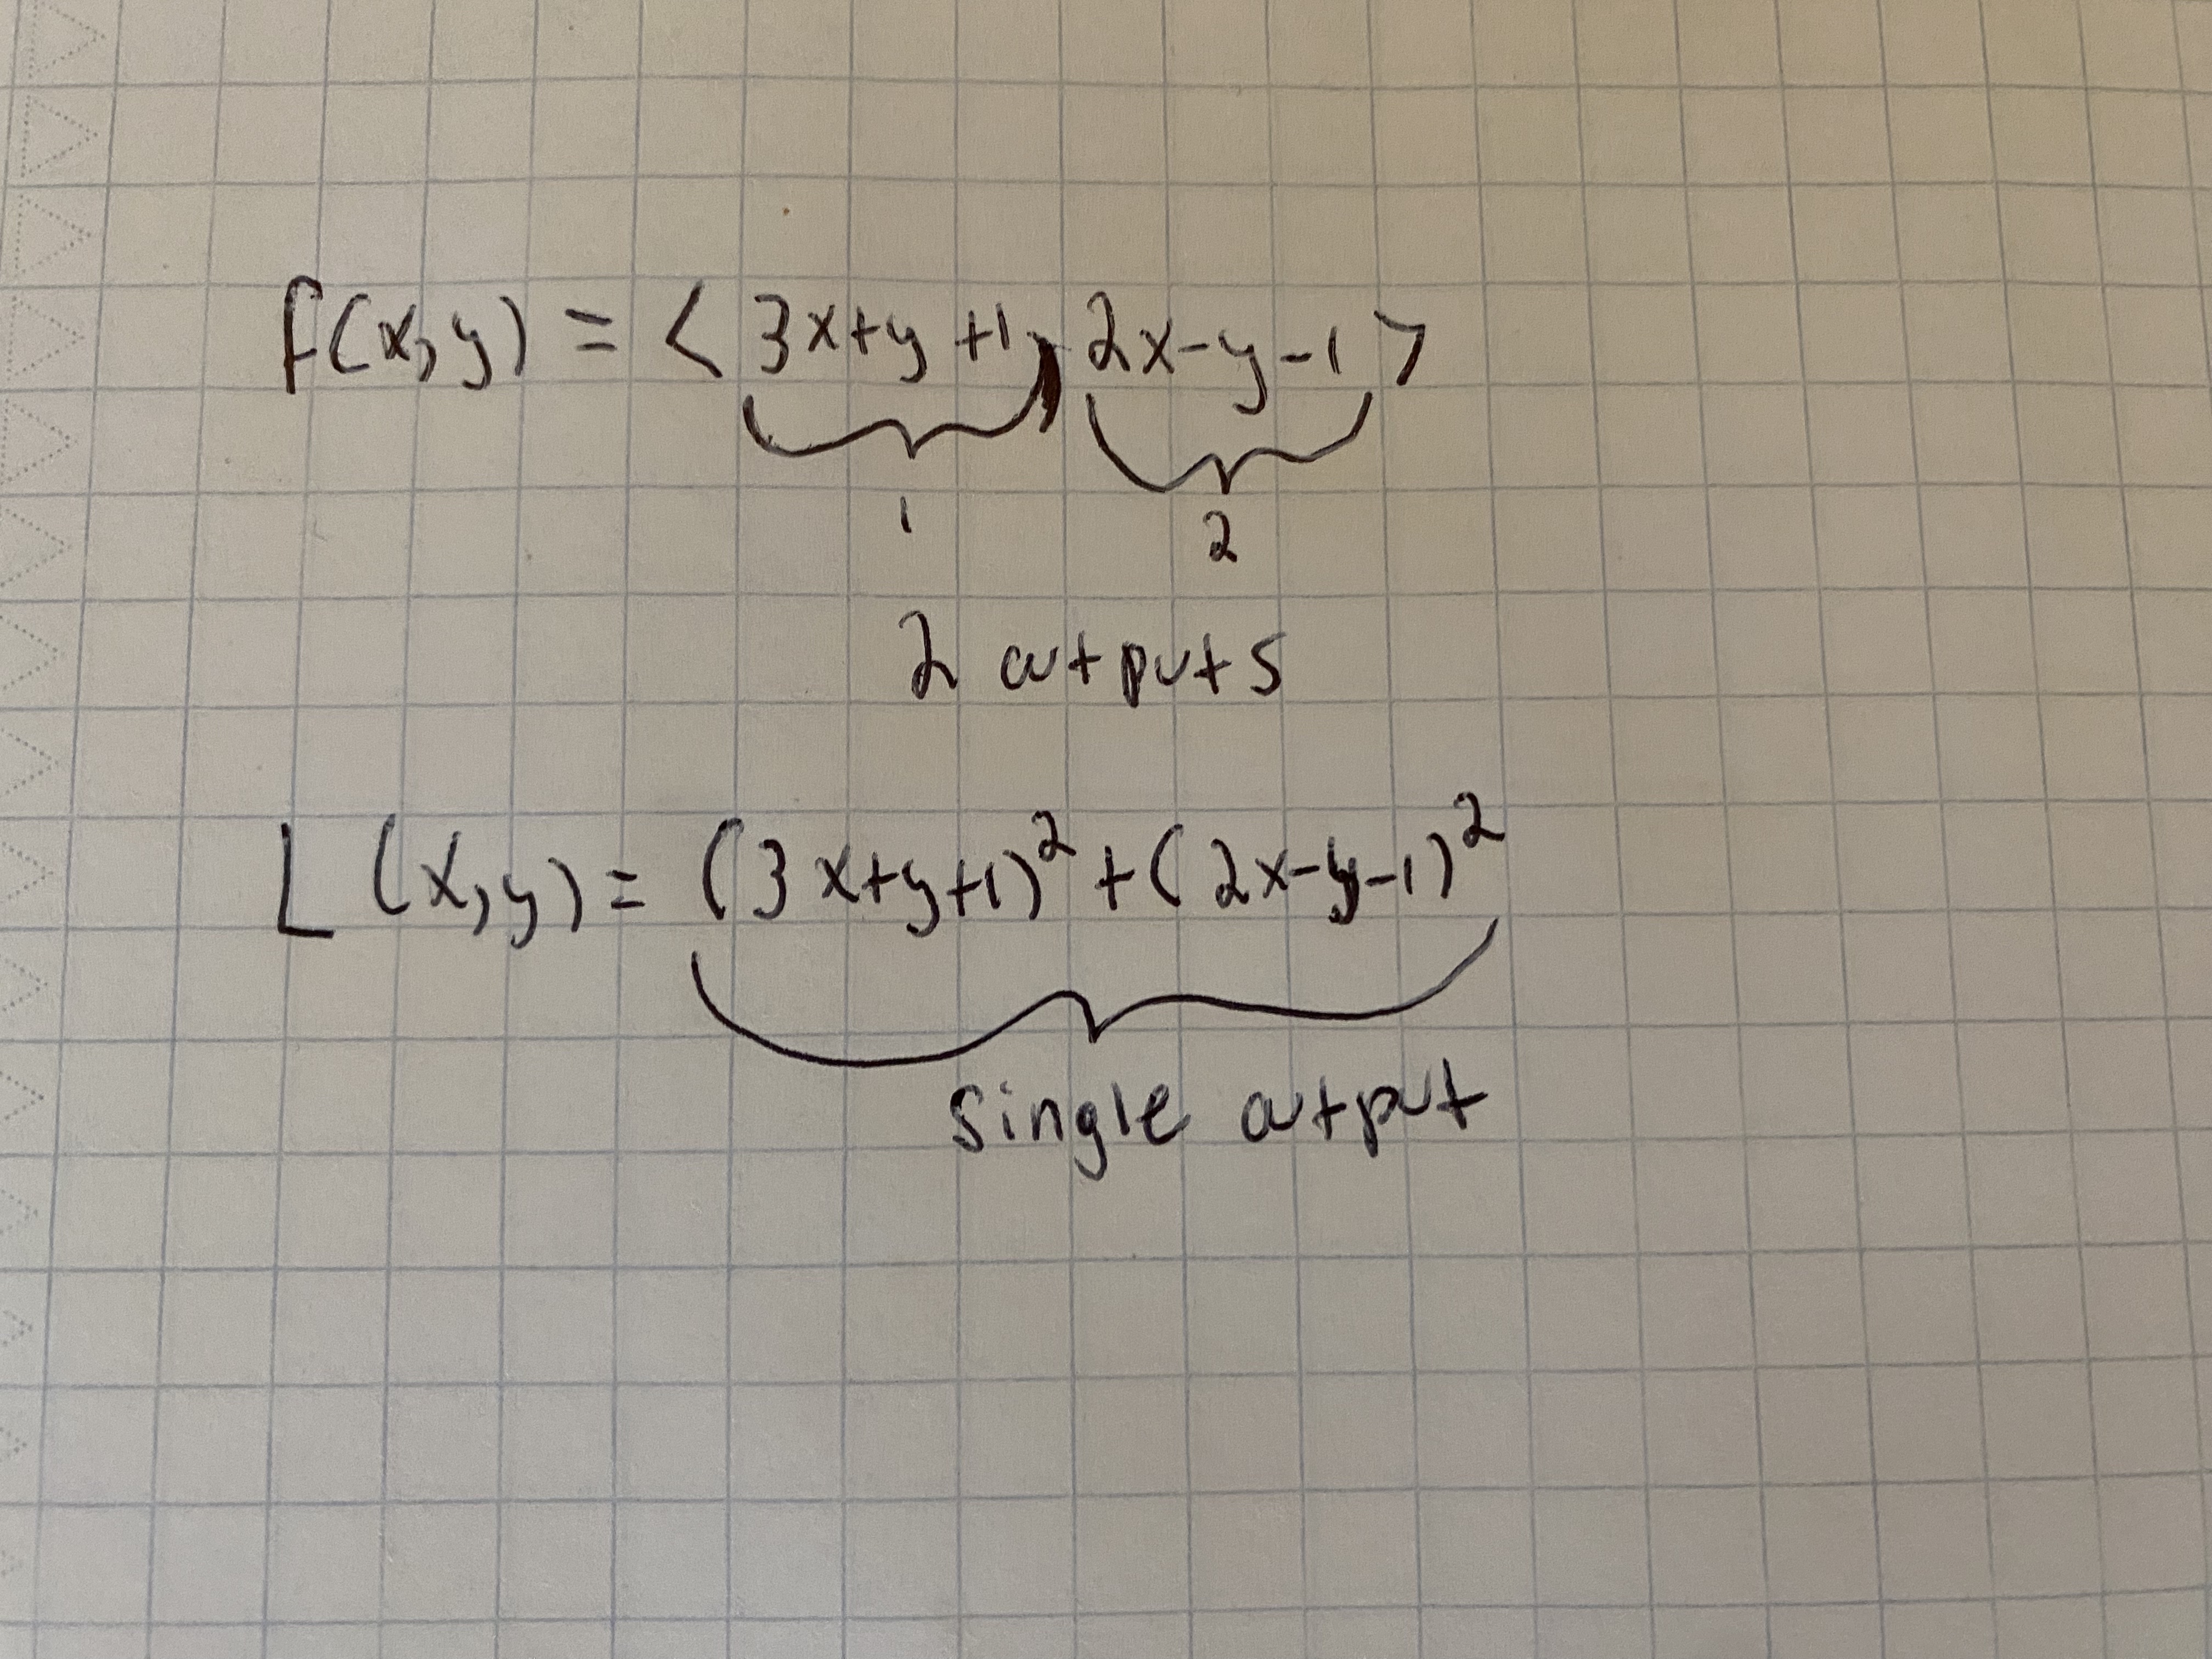 f(x,y) = <3x+y+1, 2x-y-1>
1 2
2 outputs
L(x,y) = (3x+y+1)² + (2x-y-1)²
single output